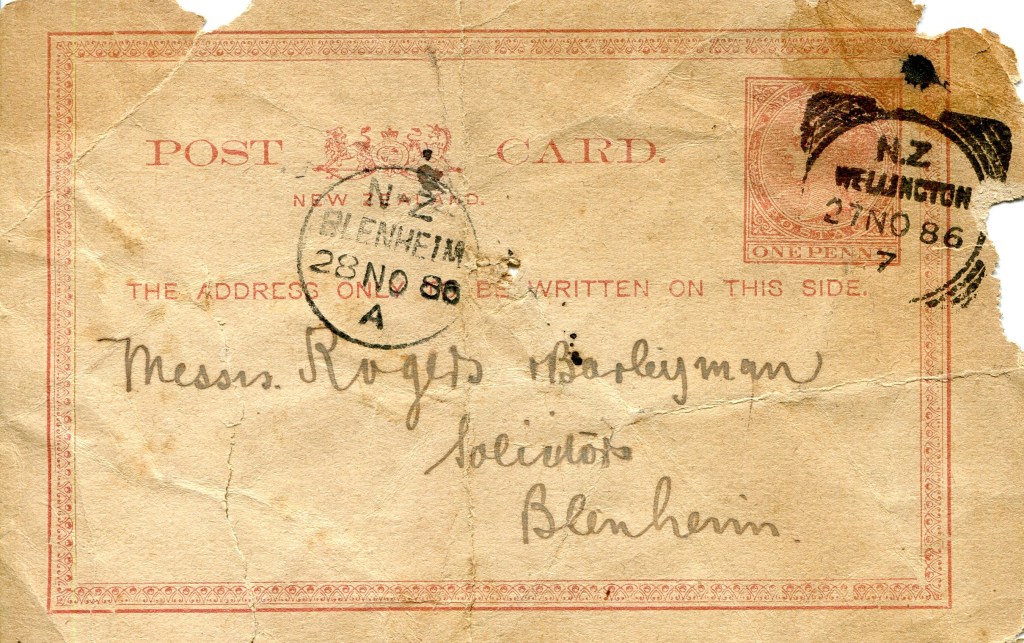 POST CARD.
NEW ZEALAND.
ONE PENNY
N.Z
WELLINGTON
27 NO 86
7
N.Z
BLENHEIM
28 NO 86
A
THE ADDRESS ONLY BE WRITTEN ON THIS SIDE.
Messrs. Rogers & Barleyman
Solicitors
Blenheim.